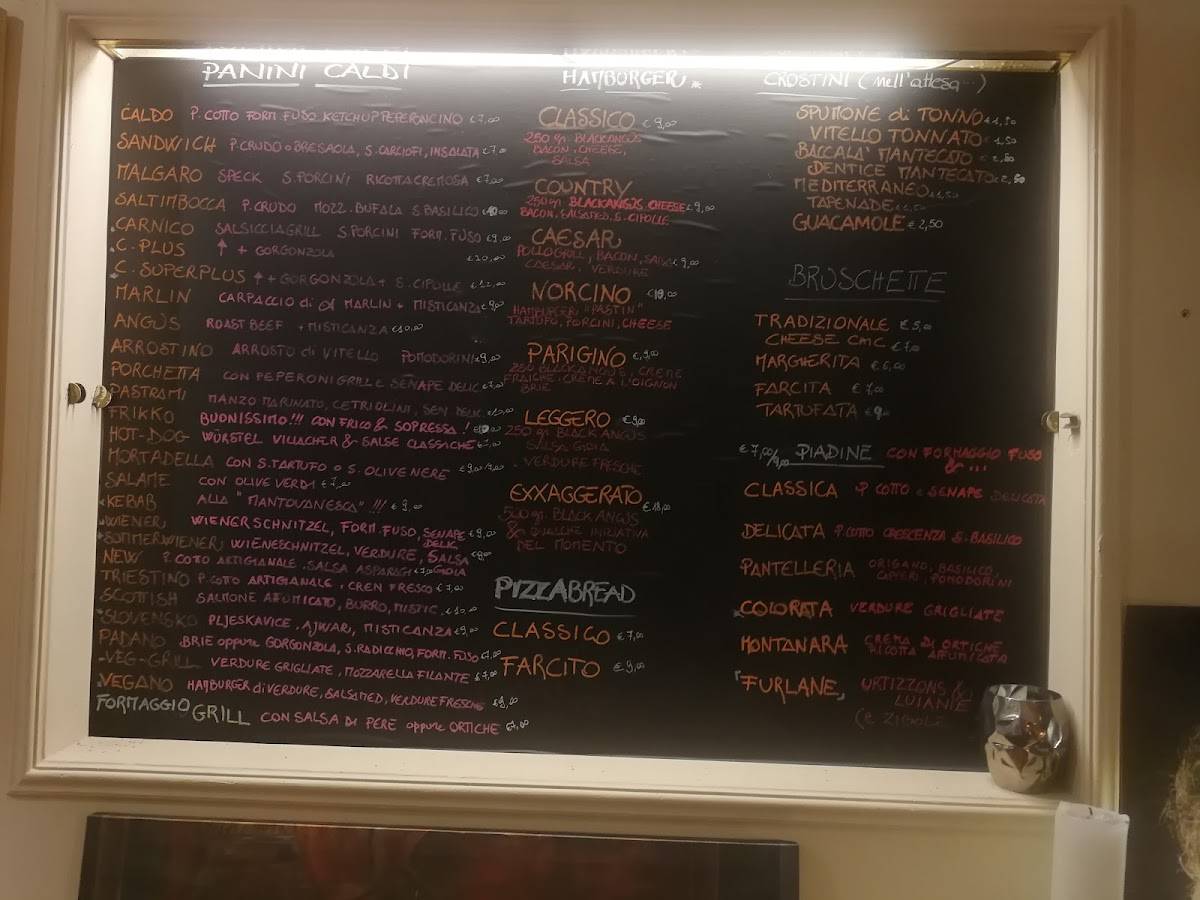 PANINI CALDI
CALDO P. COTTO FORM. FUSO KETCHUP PEPERONCINO €7,00
SANDWICH P. CRUDO O BRESAOLA, S. CARCIOFI, INSALATA €7,00
MALGARO SPECK S. PORCINI RICOTTA CREMOSA €7,00
SALTIMBOCCA P. CRUDO MOZZ. BUFALA S. BASILICO
CARNICO SALSICCIA GRILL S. PORCINI FORM. FUSO €9,00
C. PLUS ↑ + GORGONZOLA €10,00
C. SUPERPLUS ↑ + GORGONZOLA + S. CIPOLLE €12,00
MARLIN CARPACCIO di MARLIN + MISTICANZA €9,00
ANGUS ROAST BEEF + MISTICANZA €10,00
ARROSTINO ARROSTO di VITELLO POMODORINI €9,00
PORCHETTA CON PEPERONI GRILL E SENAPE DELIC €7,00
PASTRAMI MANZO MARINATO, CETRIOLINI, SEN DELIC €10,00
FRIKKO BUONISSIMO!!! CON FRICO & SOPRESSA!
HOT-DOG WÜRSTEL VILLACHER & SALSE CLASSICHE €7,00
MORTADELLA CON S. TARTUFO O S. OLIVE NERE
SALAME CON OLIVE VERDI €7,00
KEBAB ALLA "MANTOVANESCA" !!! €9,00
WIENER WIENER SCHNITZEL, FORM. FUSO, SENAPE DELIC. €9,00
SOMMERWIENER WIENESCHNITZEL, VERDURE, SALSA GIOIA
NEW P. COTTO ARTIGIANALE. SALSA ASPARAGI €7,00
TRIESTINO P. COTTO ARTIGIANALE, CREN FRESCO €7,00
SCOTTISH SALMONE AFFUMICATO, BURRO, MISTIC. €10,00
SLOVENSKO PLJESKAVICE, AJWAR, MISTICANZA €9,00
PADANO BRIE oppure GORGONZOLA, S. RADICCHIO, FORM. FUSO €7,00
VEG-GRILL VERDURE GRIGLIATE, MOZZARELLA FILANTE €7,00
VEGANO HAMBURGER di VERDURE, BALSAMED, VERDURE FRESCHE €9,00
FORMAGGIO GRILL CON SALSA DI PERE oppure ORTICHE €7,00
HAMBURGER
CLASSICO €9,00
250 gr. BLACK ANGUS
BACON, CHEESE,
SALSA
COUNTRY
250 gr BLACKANGUS CHEESE €9,00
BACON, BALSAMED, S. CIPOLLE
CAESAR
POLLO GRILL, BACON, SALSA €9,00
CAESAR, VERDURE
NORCINO €10,00
HAMBURGER "PASTIN"
TARTUFO, PORCINI, CHEESE
PARIGINO €9,00
250 BLACK ANGUS, CREME
FRAICHE, CREME A L'OIGNON
BRIE
LEGGERO €9,00
250 gr. BLACK ANGUS
SALSA GIOIA
VERDURE FRESCHE
EXXAGERATO €18,00
500 gr. BLACK ANGUS
& QUALCHE INIZIATIVA
DEL MOMENTO
PIZZABREAD
CLASSICO €7,00
FARCITO €9,00
CROSTINI (nell'attesa...)
SPUMONE di TONNO €1,50
VITELLO TONNATO €1,50
BACCALA' MANTECATO €2,50
DENTICE MANTECATO €2,50
MEDITERRANEO €1,50
TAPENADE €1,50
GUACAMOLE €2,50
BRUSCHETTE
TRADIZIONALE €5,00
CHEESE CHIC €7,00
MARGHERITA €6,00
FARCITA €7,00
TARTUFATA €9,00
€7,00/9,00 PIADINE CON FORMAGGIO FUSO & ...
CLASSICA P. COTTO e SENAPE DELICATA
DELICATA P. COTTO CRESCENZA S. BASILICO
PANTELLERIA ORIGANO, BASILICO,
CAPPERI, POMODORINI
COLORATA VERDURE GRIGLIATE
MONTANARA CREMA DI ORTICHE
RICOTTA AFFUMICATA
"FURLANE" URTIZZONS &
LUIANIE